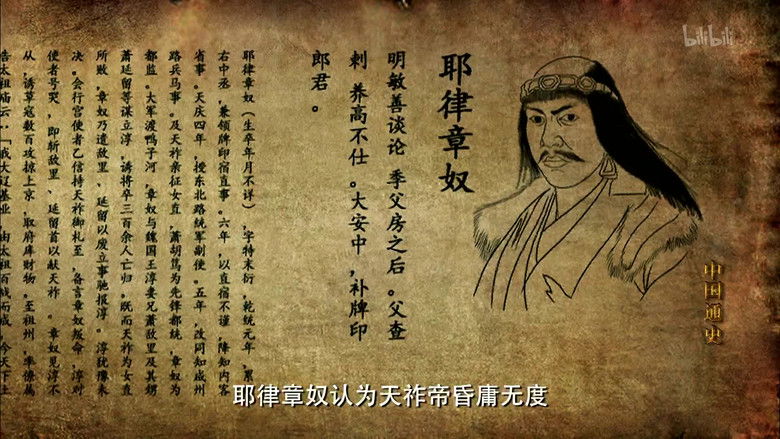 bilibili
耶律章奴
明敏善谈论 季父房之后。父查
刺 养高不仕。大安中,补牌印
郎君。
耶律章奴(生卒年月不详),字特末衍,乾统元年,累
右中丞,兼领牌印宿直事。六年,以直宿不谨,降知内客
省事。天庆四年,授东北路统军副使。五年,改同知咸州
路兵马事。及天祚亲征女直,萧胡笃为先锋都统,章奴为
都监。大军渡鸭子河,章奴与魏国王淳妻兄萧敌里及其甥
萧延留等谋立淳,诱将卒三百余人亡归。既而天祚为女直
所败,章奴乃遣敌里、延留以废立事驰报淳。淳犹豫未
决。会行宫使者乙信持天祚御札至,备言章奴叛命,淳对
使者号哭,即斩敌里、延留首以献天祚。章奴见淳不
从,诱草寇数百攻掠上京,取府库财物。至祖州,率僚属
告太祖庙云:“我大辽基业,由太祖百战而成。今天下土
中国通史
耶律章奴认为天祚帝昏庸无度